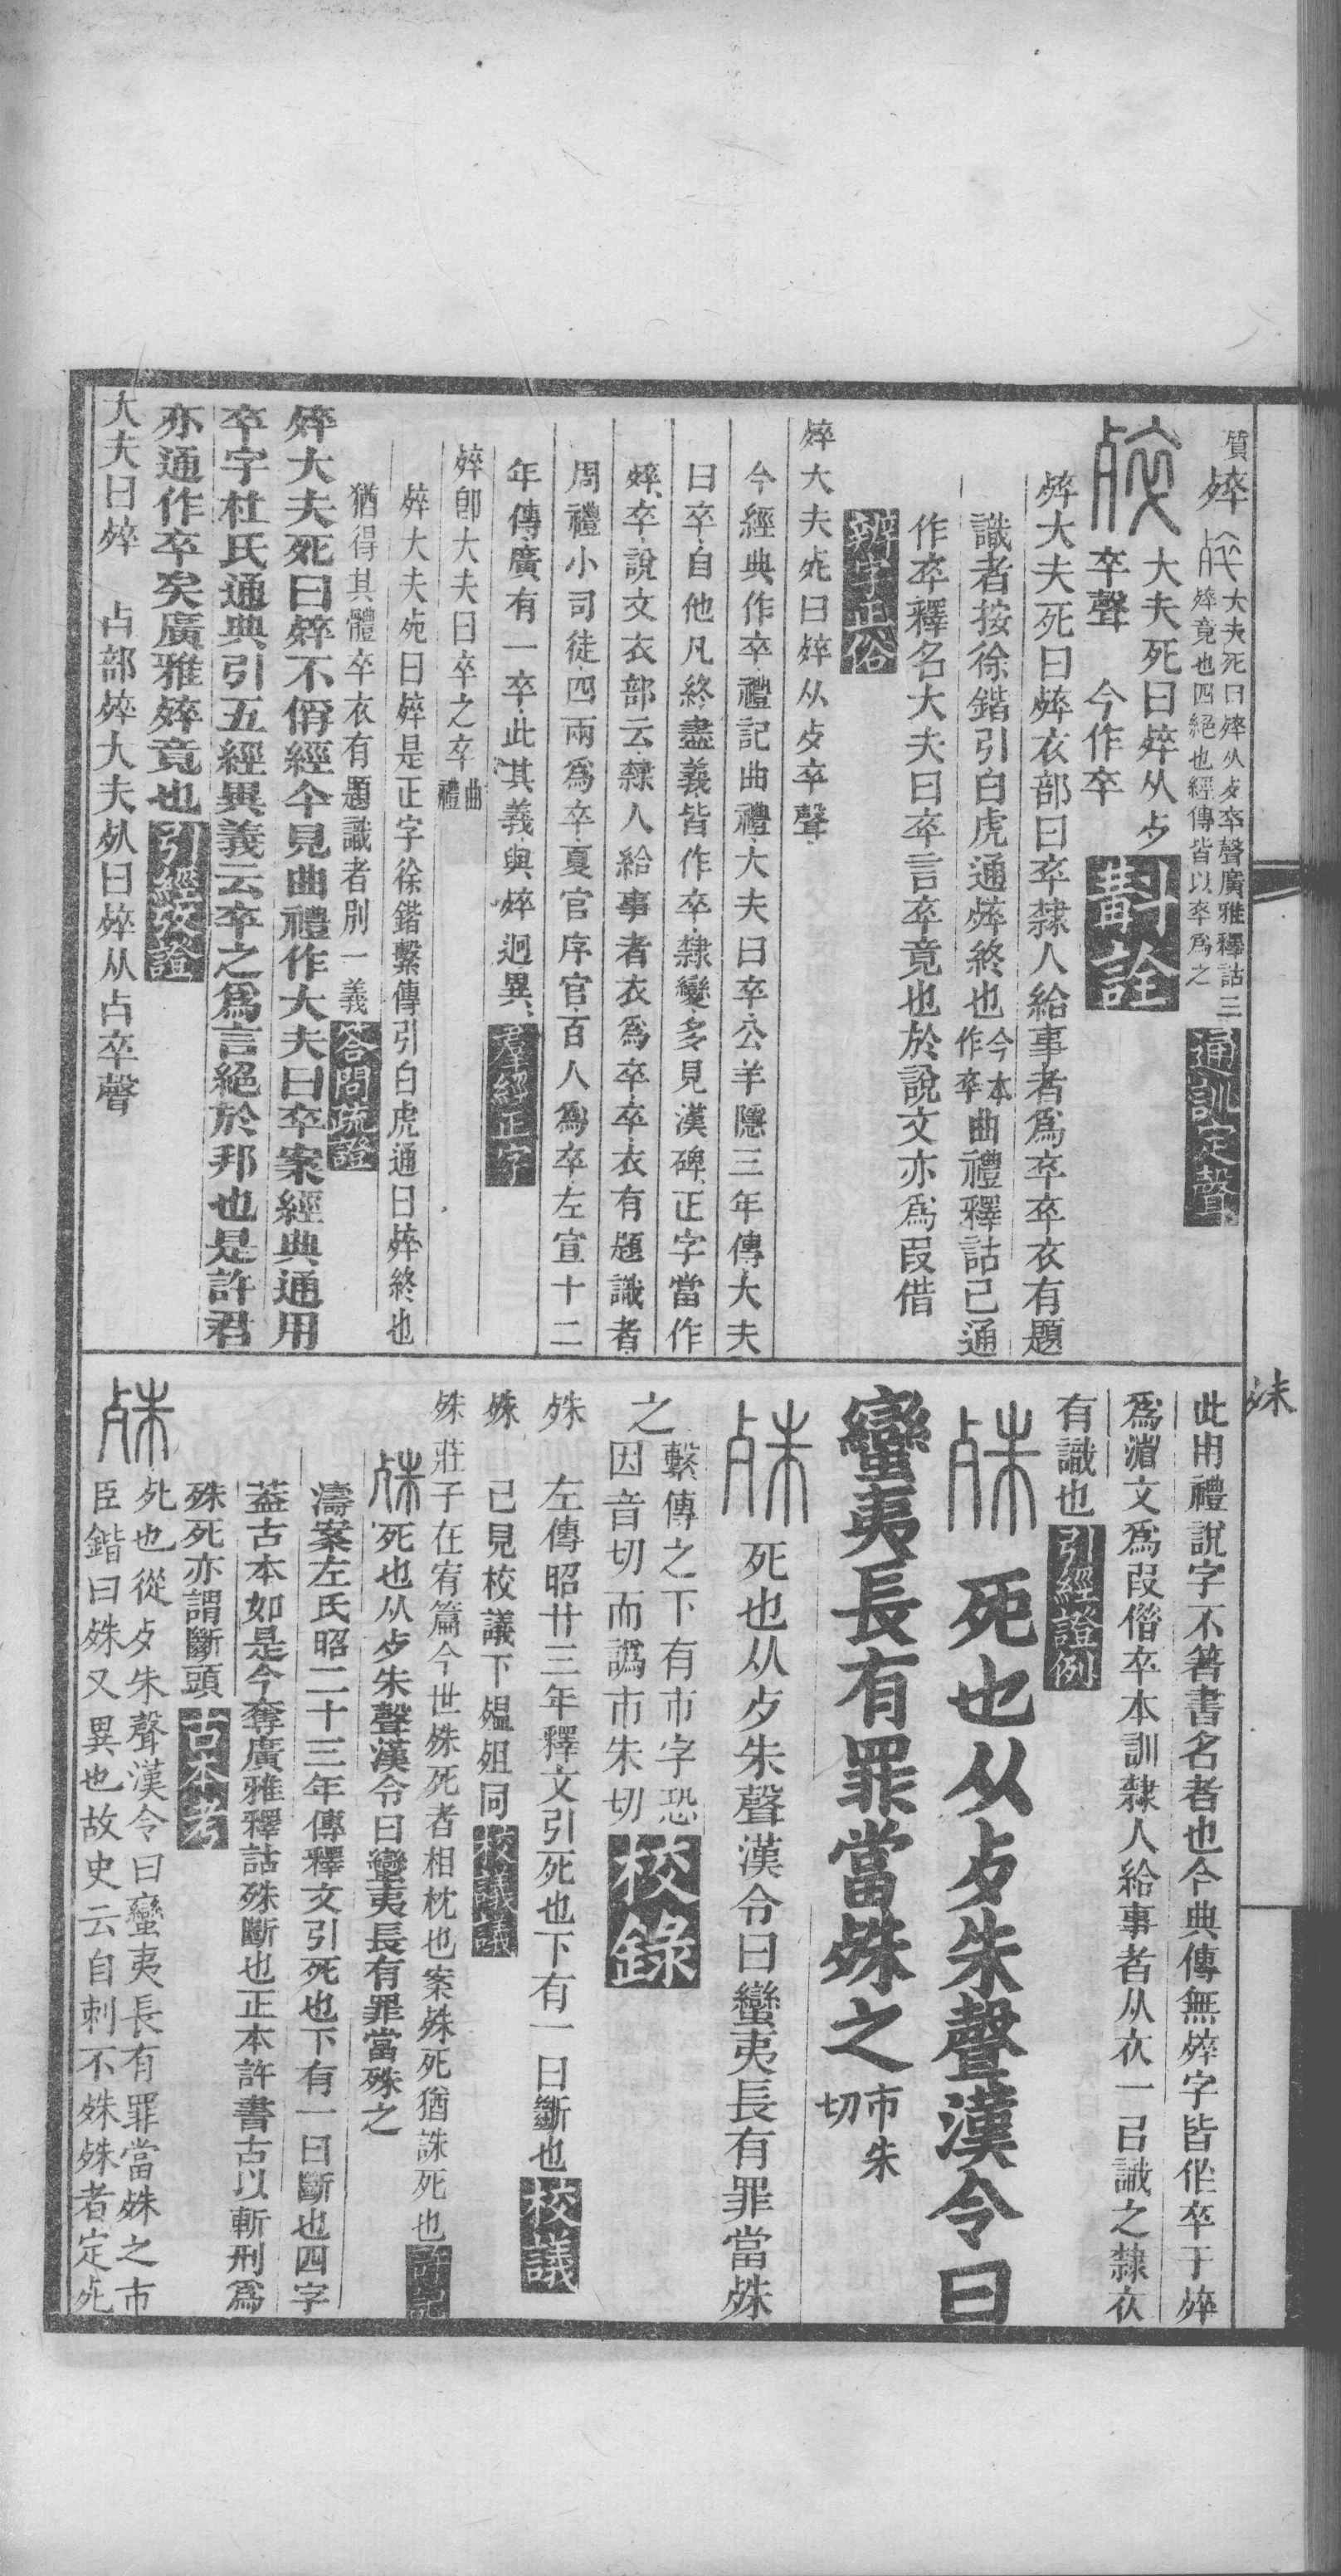 質䘹大夫死曰䘹从歺卒聲廣雅釋詁三
䘹竟也四絕也經傳皆以卒爲之
通訓定聲
大夫死曰䘹从歺
卒聲 今作卒
斠詮
䘹大夫死曰䘹衣部曰卒隸人給事者爲卒卒衣有題
識者按徐鍇引白虎通䘹終也今本作卒曲禮釋詁已通
作卒釋名大夫曰卒言卒竟也於說文亦爲叚借
辨字正俗
䘹大夫死曰䘹从歺卒聲
今經典作卒禮記曲禮大夫曰卒公羊隱三年傳大夫
曰卒自他凡終盡義皆作卒隸變多見漢碑正字當作
䘹卒說文衣部云隸人給事者衣爲卒卒衣有題識者
周禮小司徒四兩爲卒夏官序官百人爲卒左宣十二
年傳廣有一卒此其義與䘹迥異
羣經正字
䘹卽大夫曰卒之卒曲禮
䘹大夫死曰䘹是正字徐鍇繫傳引白虎通曰䘹終也
猶得其體卒衣有題識者別一義
答問疏證
䘹大夫死曰䘹不偁經今見曲禮作大夫曰卒案經典通用
卒字杜氏通典引五經異義云卒之爲言絕於邦也是許君
亦通作卒矣廣雅䘹竟也
引經攷證
大夫曰䘹 占部䘹大夫死曰䘹从占卒聲
此用禮說字不箸書名者也今典傳無䘹字皆作卒于䘹
爲渻文爲叚借卒本訓隸人給事者从衣一㠯識之隸衣
有識也
引經證例
殊
殊 死也从歺朱聲漢令曰
蠻夷長有罪當殊之市朱切
殊 死也从歺朱聲漢令曰蠻夷長有罪當殊
之繫傳之下有市字恐
因音切而譌市朱切
校錄
殊 左傳昭廿三年釋文引死也下有一曰斷也
校議
殊 已見校議下殟殂同
校議議
殊 莊子在宥篇今世殊死者相枕也案殊死猶誅死也
許記
殊 死也从歺朱聲漢令曰蠻夷長有罪當殊之
濤案左氏昭二十三年傳釋文引死也下有一曰斷也四字
葢古本如是今奪廣雅釋詁殊斷也正本許書古以斬刑爲
殊死亦謂斷頭
古本考
殊 死也從歺朱聲漢令曰蠻夷長有罪當殊之市
臣鍇曰殊又異也故史云自刺不殊殊者定死